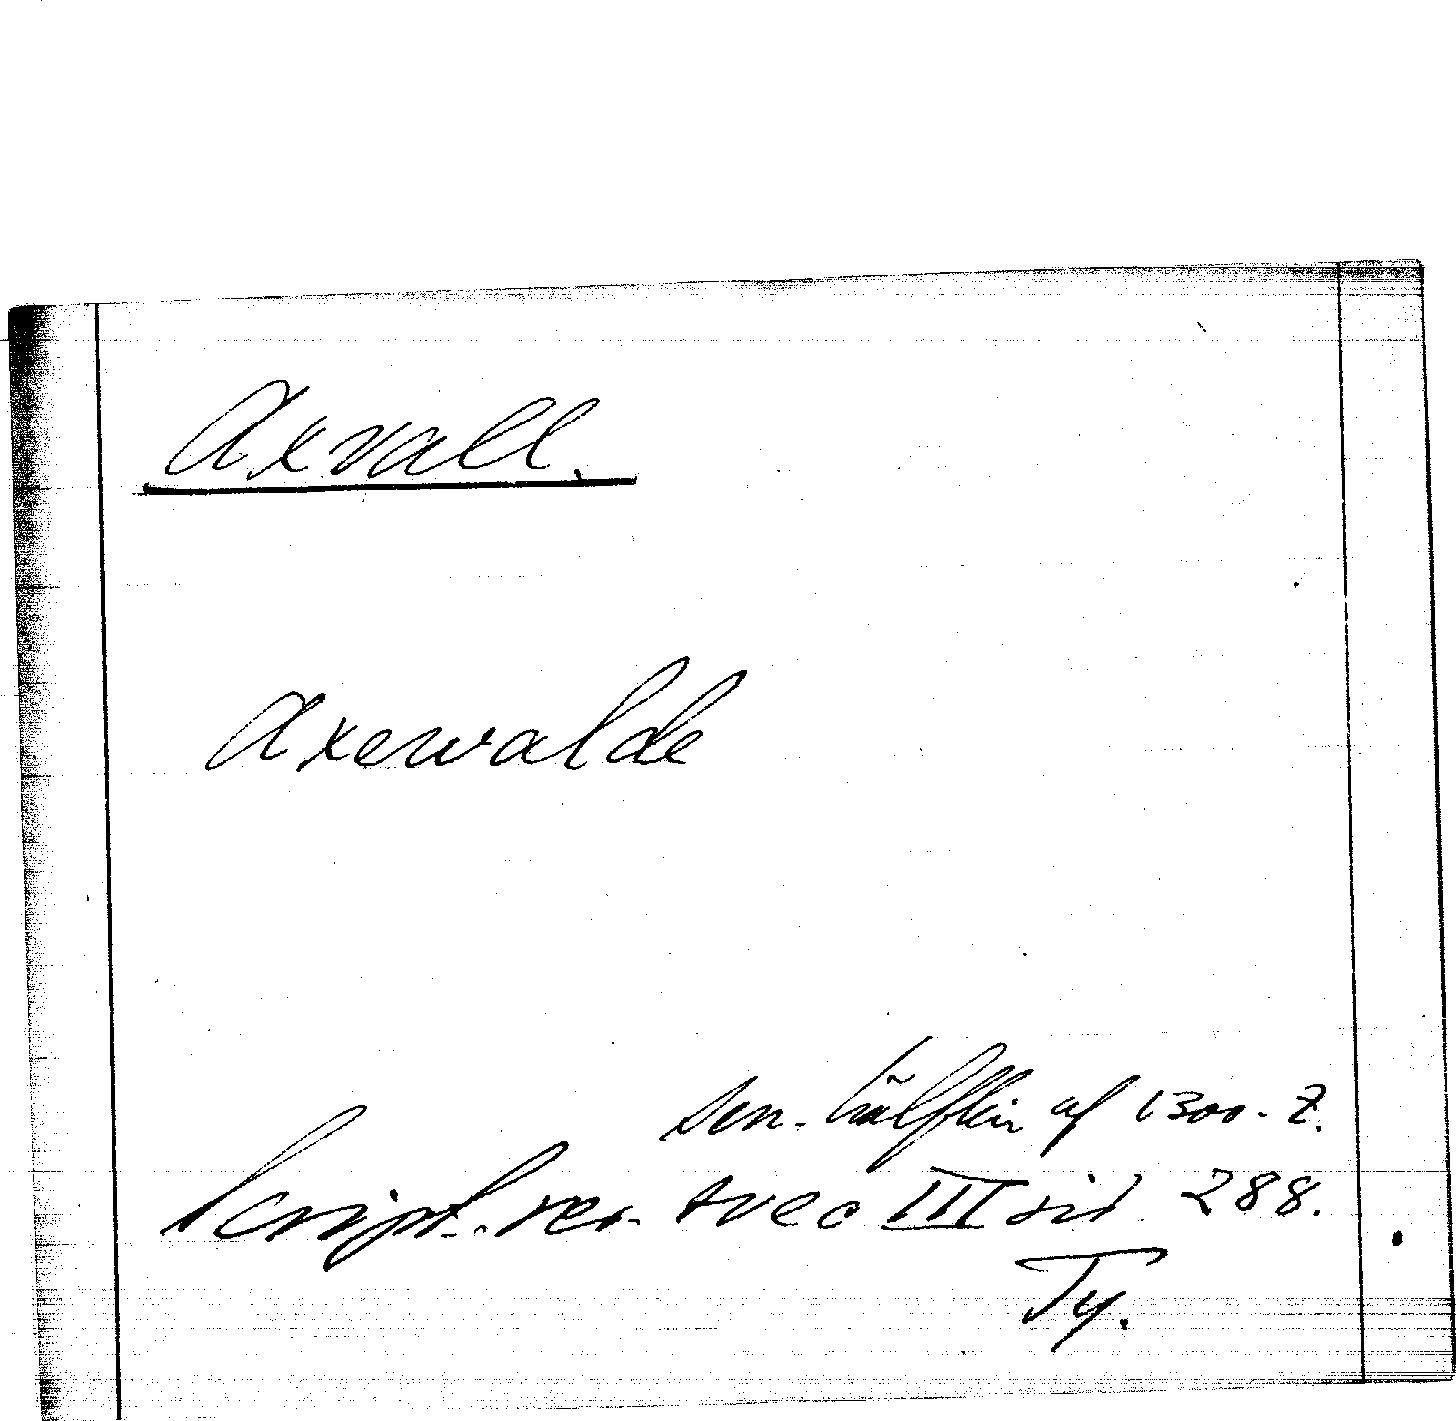 Axvall.
Axewalde
sen. hälften af 1300-t.
Script. rer. svec III sid 288.
Ty.